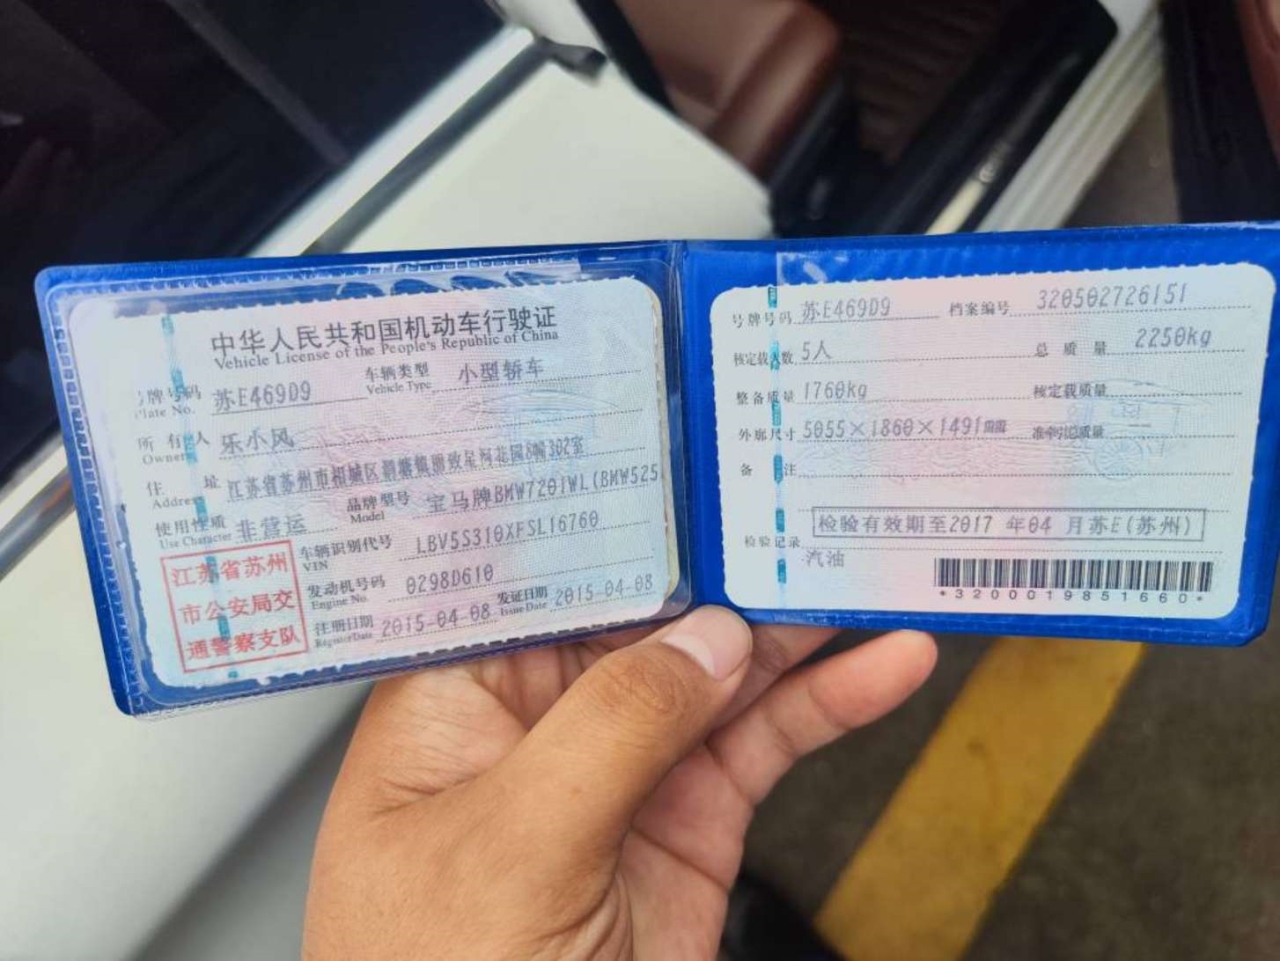 中华人民共和国机动车行驶证
Vehicle License of the People's Republic of China
号牌号码 苏E469D9 车辆类型 小型轿车
Plate No. Vehicle Type
所有人 乐小风
Owner
住址 江苏省苏州市相城区 花园8幢302室
Address
使用性质 非营运 品牌型号 宝马牌BMW7201WL(BMW525
Use Character Model
江苏省苏州
市公安局交
通警察支队
车辆识别代号 LBV5S310XFSL16760
VIN
发动机号码 0298D610
Engine No.
注册日期 2015-04-08 发证日期 2015-04-08
Register Date Issue Date
号牌号码 苏E469D9 档案编号 320502726151
核定载人数 5人 总质量 2250kg
整备质量 1760kg 核定载质量
外廓尺寸 5055×1860×1491mm 准牵引总质量
备注
检验有效期至2017 年04 月苏E(苏州)
检验记录
汽油
*3200019851660*